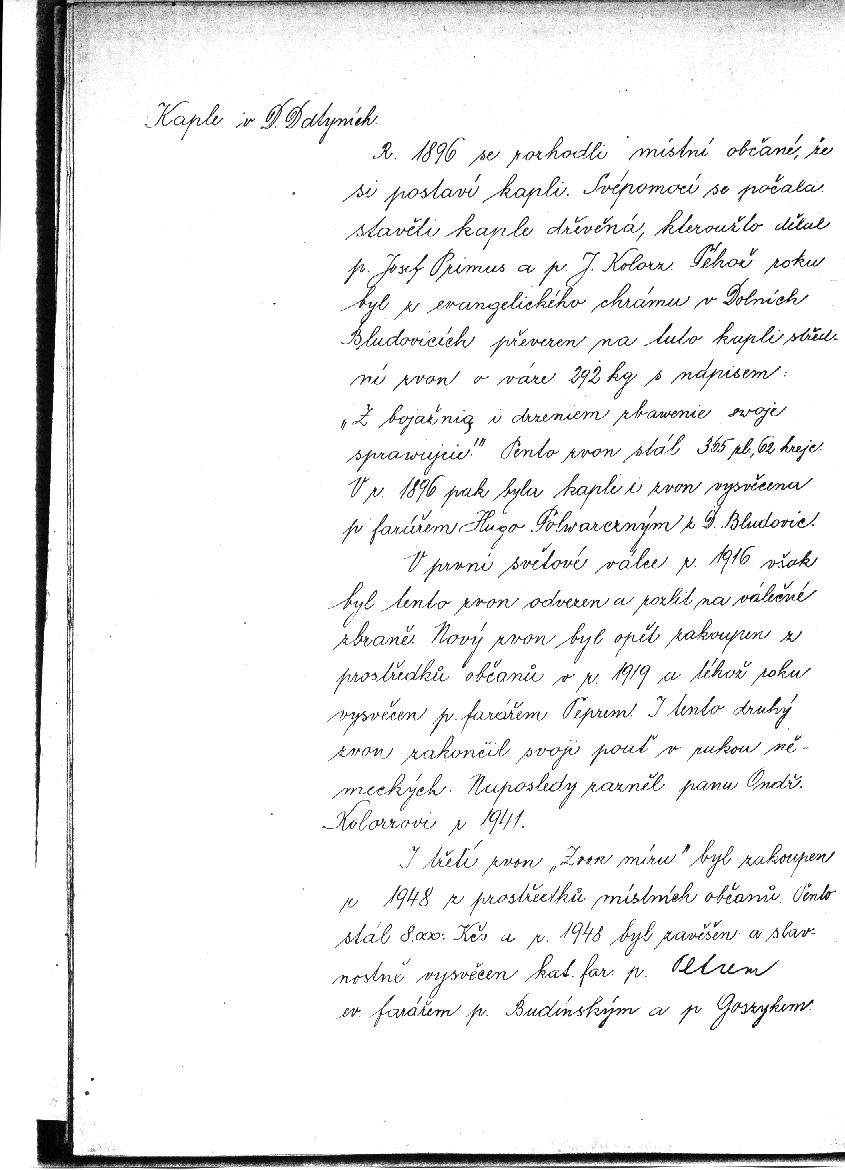 Kaple v D. Datyních.
R. 1896 se rozhodli místní občané, že
si postaví kapli. Svépomocí se počala
stavěti kaple dřevěná, kteroužto dělal
p. Josef Primus a p. J. Kolorz. Téhož roku
byl z evangelického chrámu v Dolních
Bludovicích převezen na tuto kapli střed-
ní zvon o váze 292 kg s nápisem:
„Z bojaźnią i drzeniem zbawenie swoje
sprawujcie!" Tento zvon stál 365 zl, 62 krejc.
V r. 1896 pak byla kaple i zvon vysvěcena
p. farářem Hugo Folwarczným z D. Bludovic.
V první světové válce r. 1916 však
byl tento zvon odvezen a rozlit na válečné
zbraně. Nový zvon byl opět zakoupen z
prostředků občanů v r. 1919 a téhož roku
vysvěcen p. farářem Peprem. I tento druhý
zvon zakončil svoji pouť v rukou ně-
meckých. Naposledy zazněl panu Ondř.
Kolorzovi r 1941.
I třetí zvon „Zvon míru" byl zakoupen
r 1948 z prostředků místních občanů. Tento
stál 8.000.- Kčs a r. 1948 byl zavěšen a slav-
nostně vysvěcen kat. far. p. Petrem
ev. farářem p. Budínským a p Goszykem.